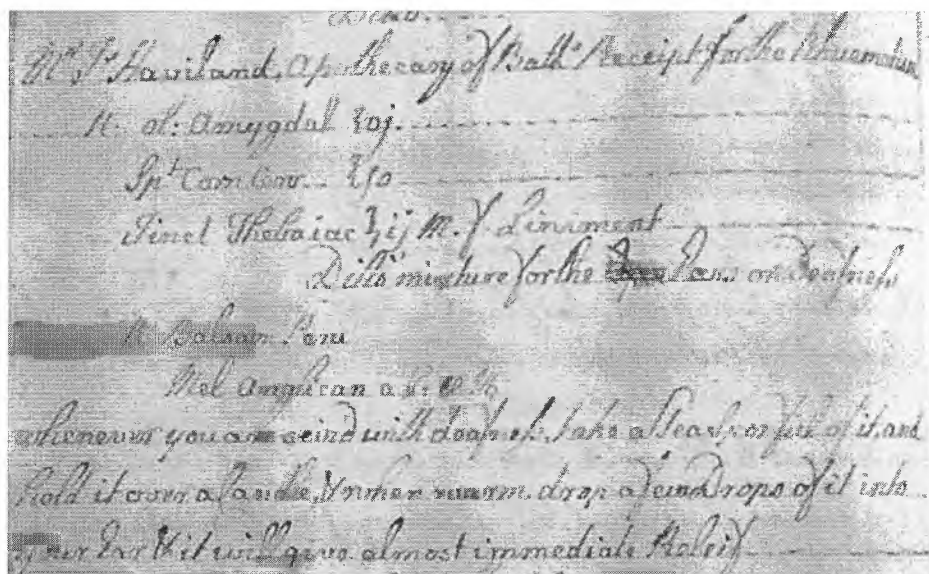 Mr. Jn. Haviland, Apothecary of Bath's Receipt for the Rhumatism
R. ol: Amygdal ℥vj.
Spt Corn Cerv. ℥ss
Tinct Thebaiac ʒij M. f. Liniment
Ditto mixture for the Ears or Deafness
R Balsam Peru
Mel Anglican a
whenever you are seized with deafness, take a Teaspoonful of it, and
hold it over a Candle, & when warm drop a few drops of it into
your Ear & it will give almost immediate Releif